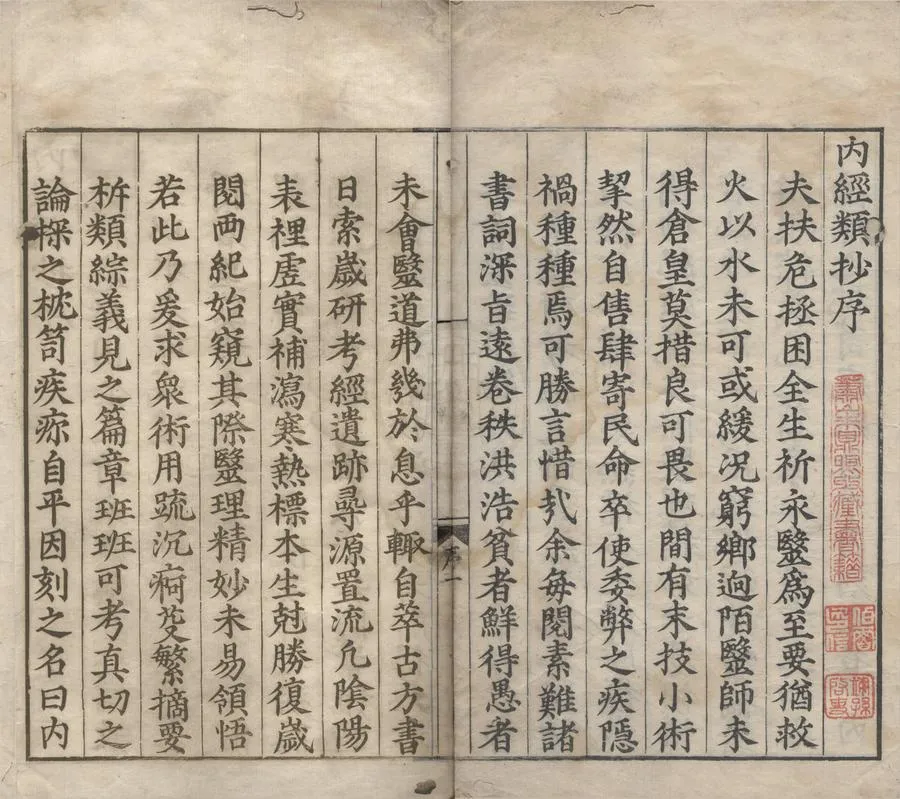 内經類抄序
夫扶危拯困全生祈永毉爲至要猶救
火以水未可或緩况窮鄉逈陌毉師未
得倉皇莫措良可畏也間有末技小術
挈然自售肆寄民命卒使委弊之疾隱
禍種種焉可勝言惜㢤余每閱素難諸
書詞深旨遠卷秩洪浩貧者鮮得愚者
未會毉道弗幾於息乎輙自萃古方書
日索歲研考經遺跡尋源置流凢陰陽
表裡虗實補瀉寒熱標本生尅勝復歲
閱兩紀始窺其際毉理精妙未易領悟
若此乃爰求衆術用䟽沉疴芟繁摘要
析類綜義見之篇章班班可考真切之
論探之枕笥疾疢自平因刻之名曰内
序一